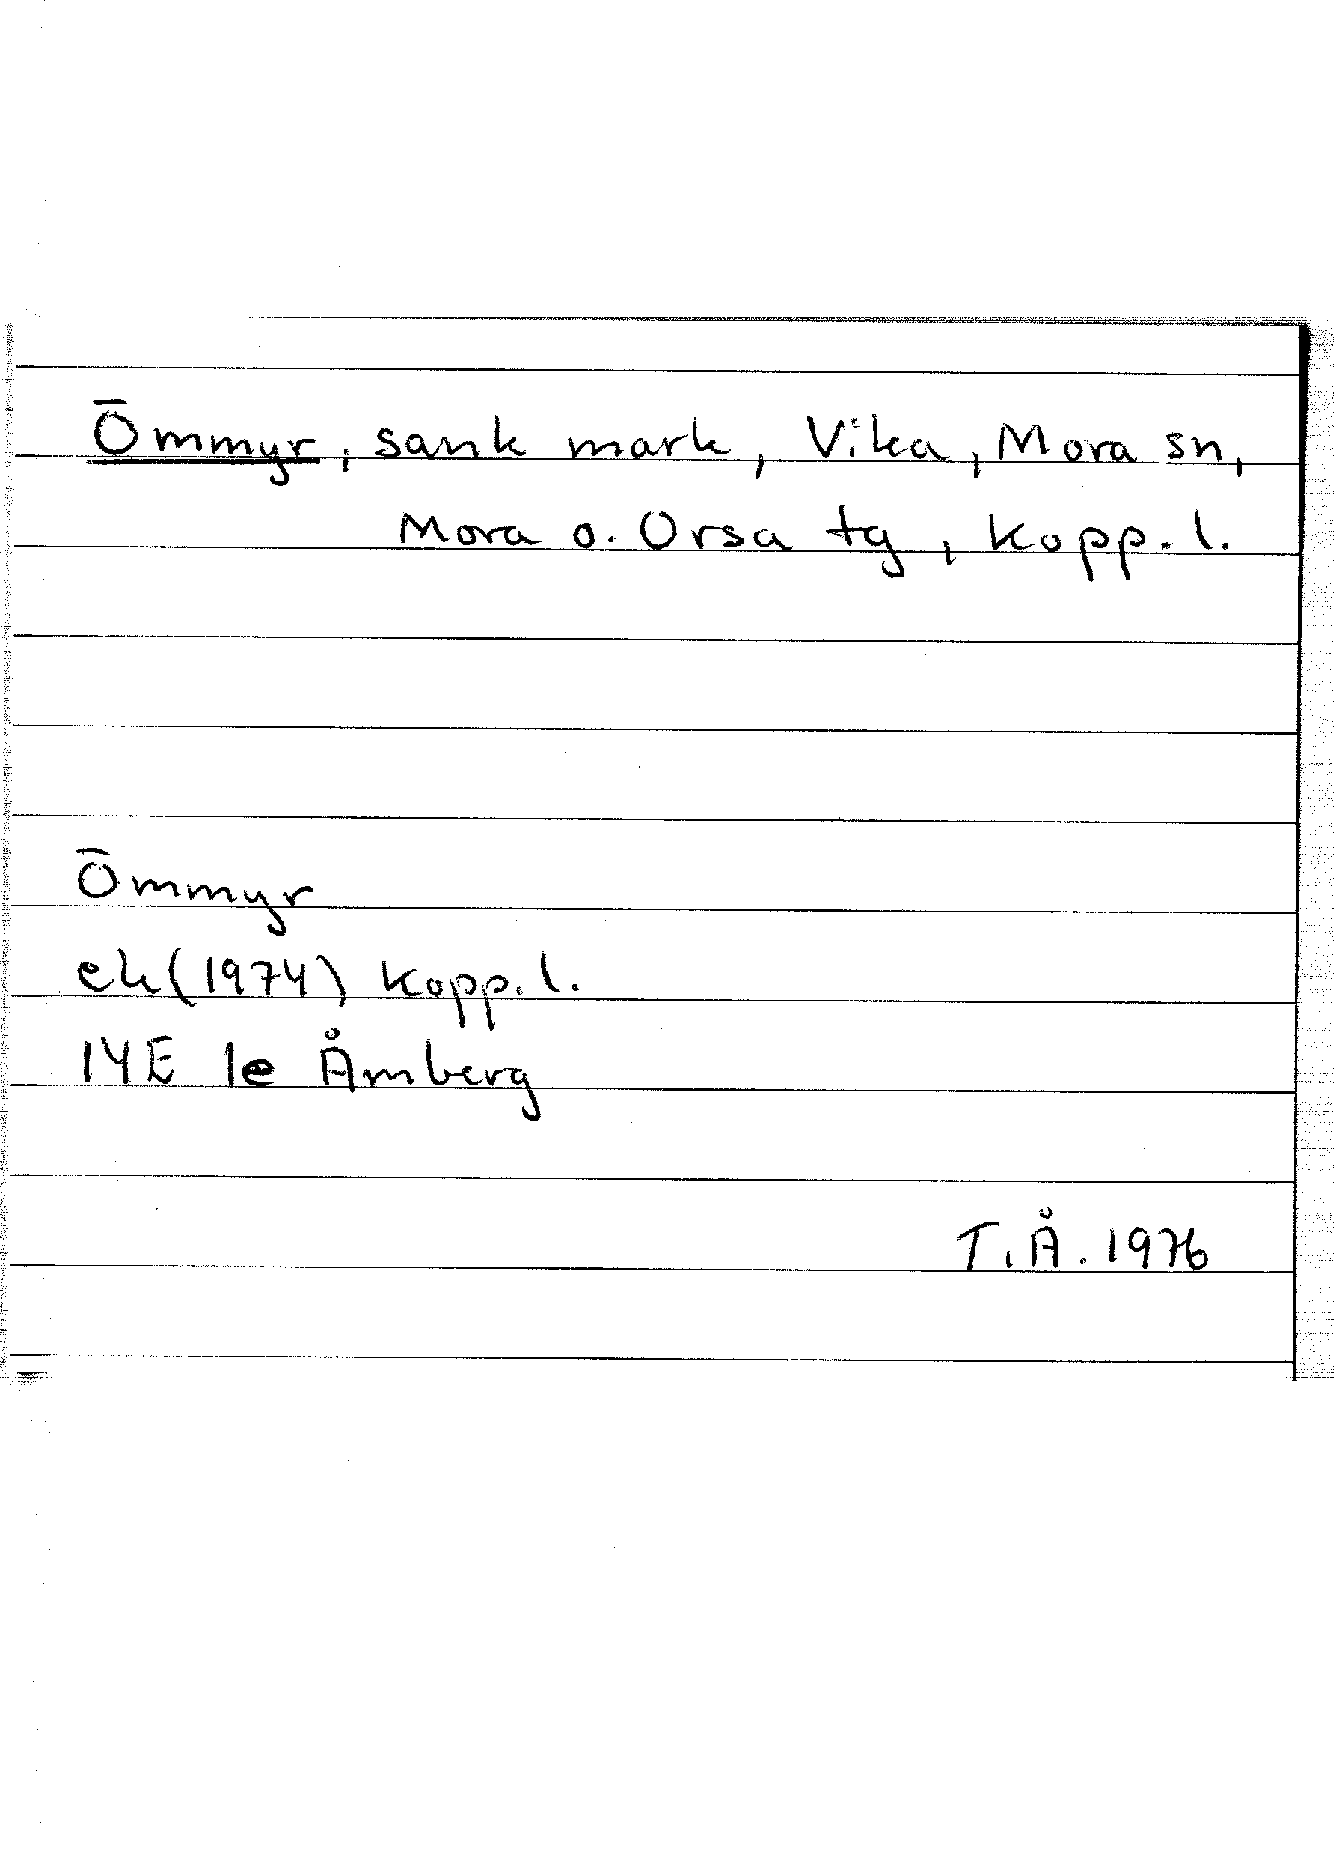 Ömmyr, sank mark, Vika, Mora sn,
Mora o. Orsa tg, Kopp. l.
Ömmyr
ek (1974) Kopp. l.
14E 1e Åmberg
T.Å. 1976